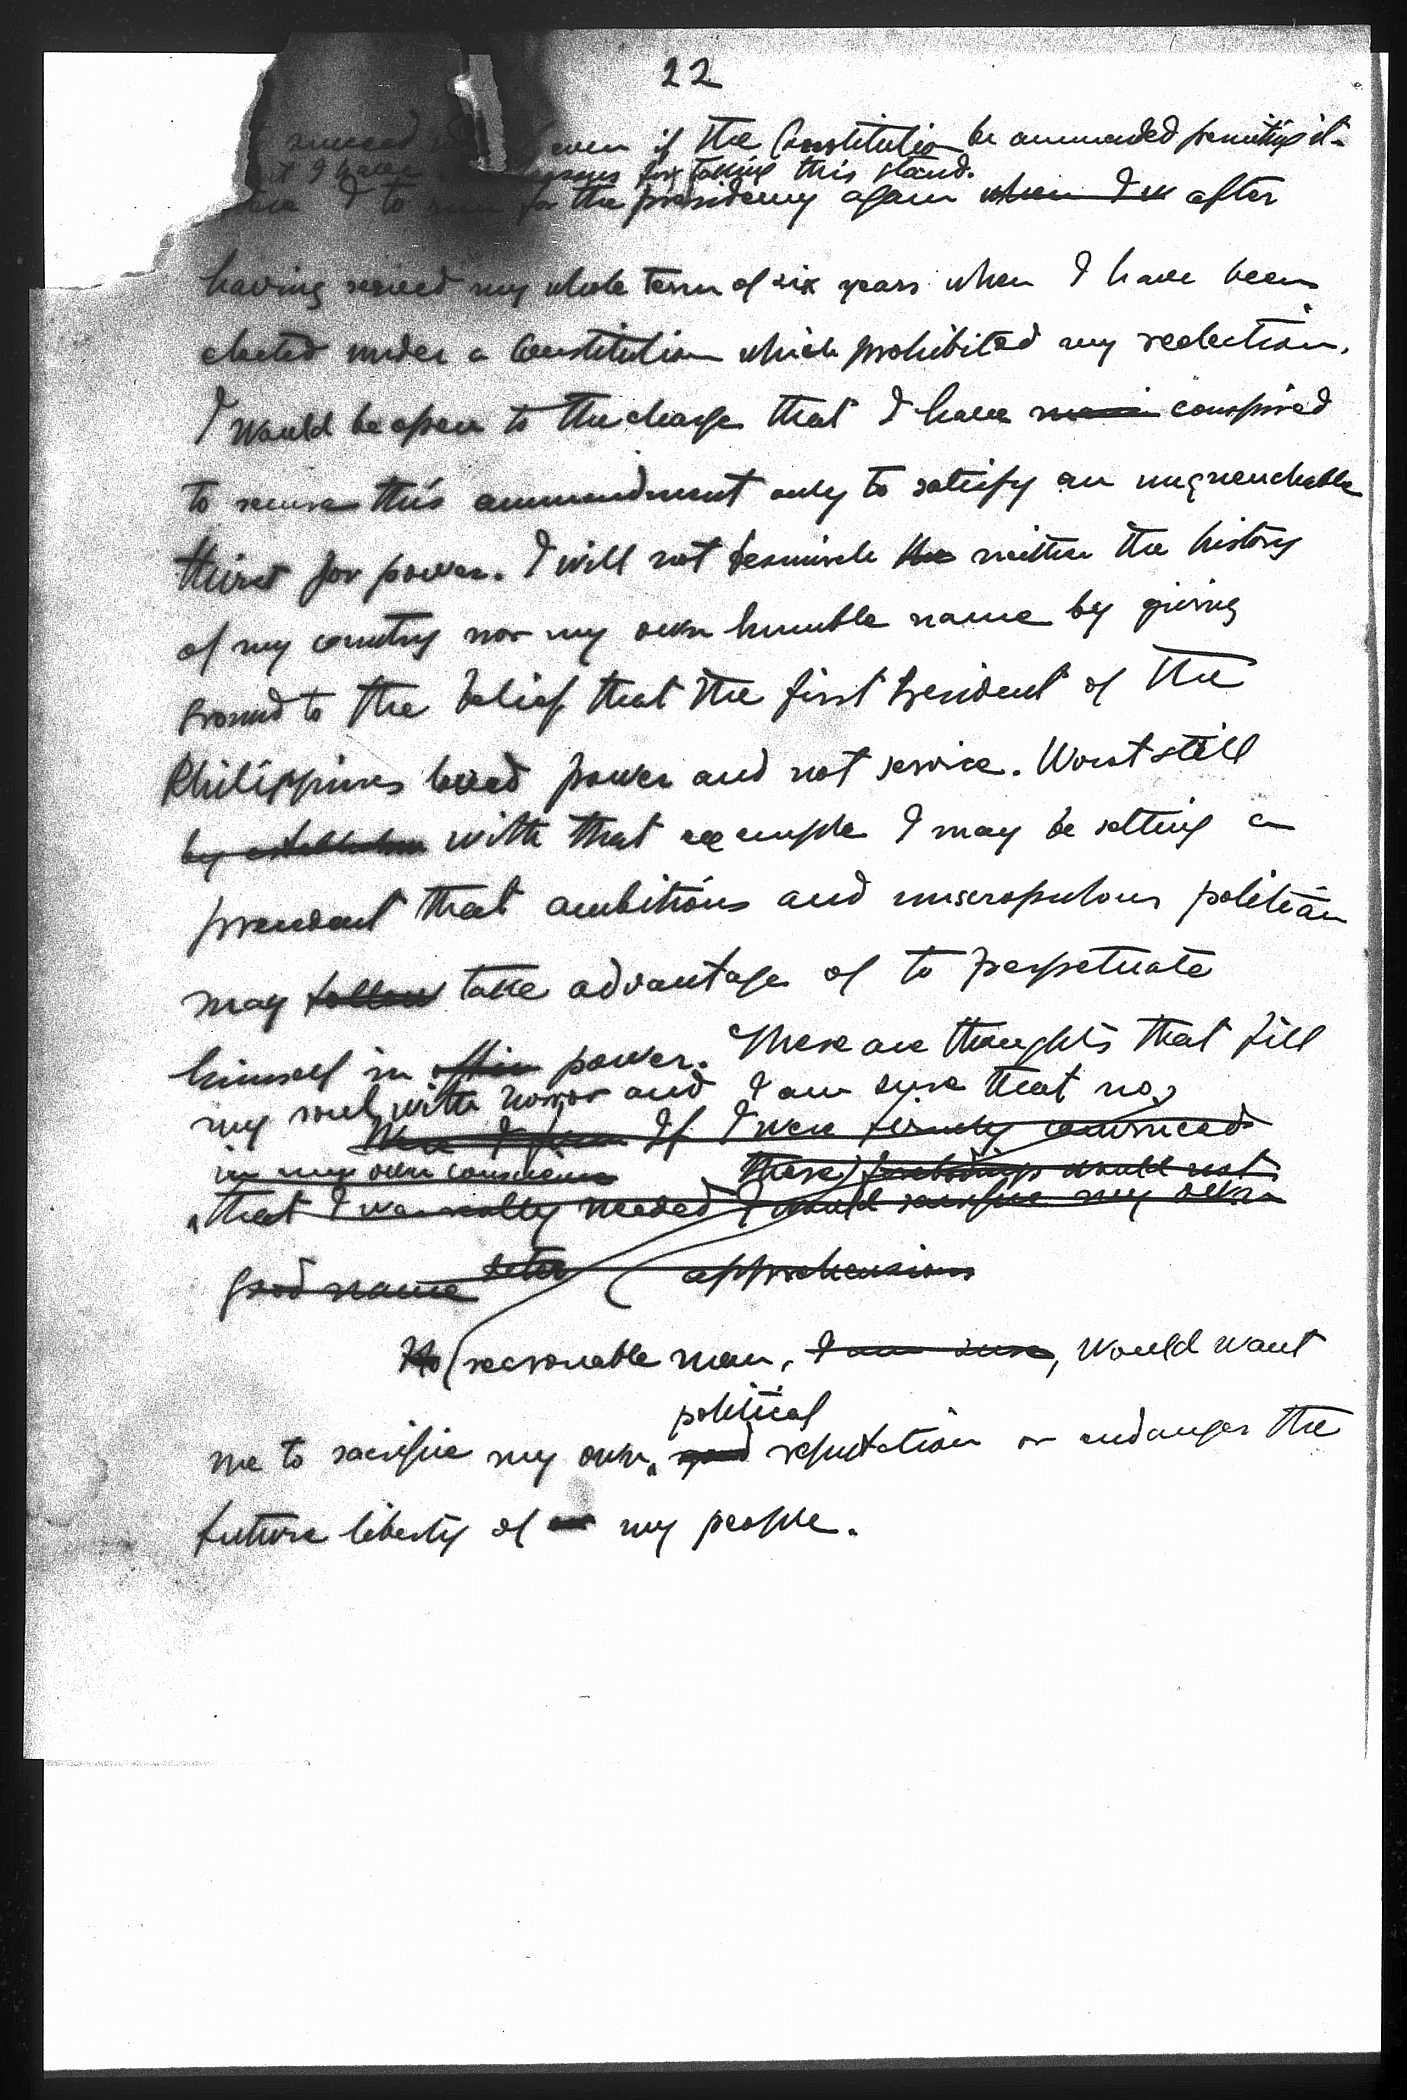 22
succeed even if the Constitution be ammended permitting it.
I have reasons for taking this stand.
I to run for the presidency again when I w after
having served my whole term of six years when I have been
elected under a Constitution which prohibited my reelection.
I would be open to the charge that I have conspired
to secure this ammendment only to satisfy an unquenchable
thirst for power. I will not the neither the history
of my country nor my own humble name by giving
ground to the belief that the first President of the
Philippines loved power and not service. Worst still
by with that example I may be setting a
precedent that ambitious and unscropulous politician
may follow take advantage of to perpetuate
himself in office power. These are thoughts that fill
my soul with horror and I am sure that no
If I were firmly convinced
in my own conscience these forebodings would not
that I was really needed I would sacrifice my own
good name apprehensions
No reasonable man, I am sure, would want
political
me to sacrifice my own good reputation or endanger the
future liberty of my people.